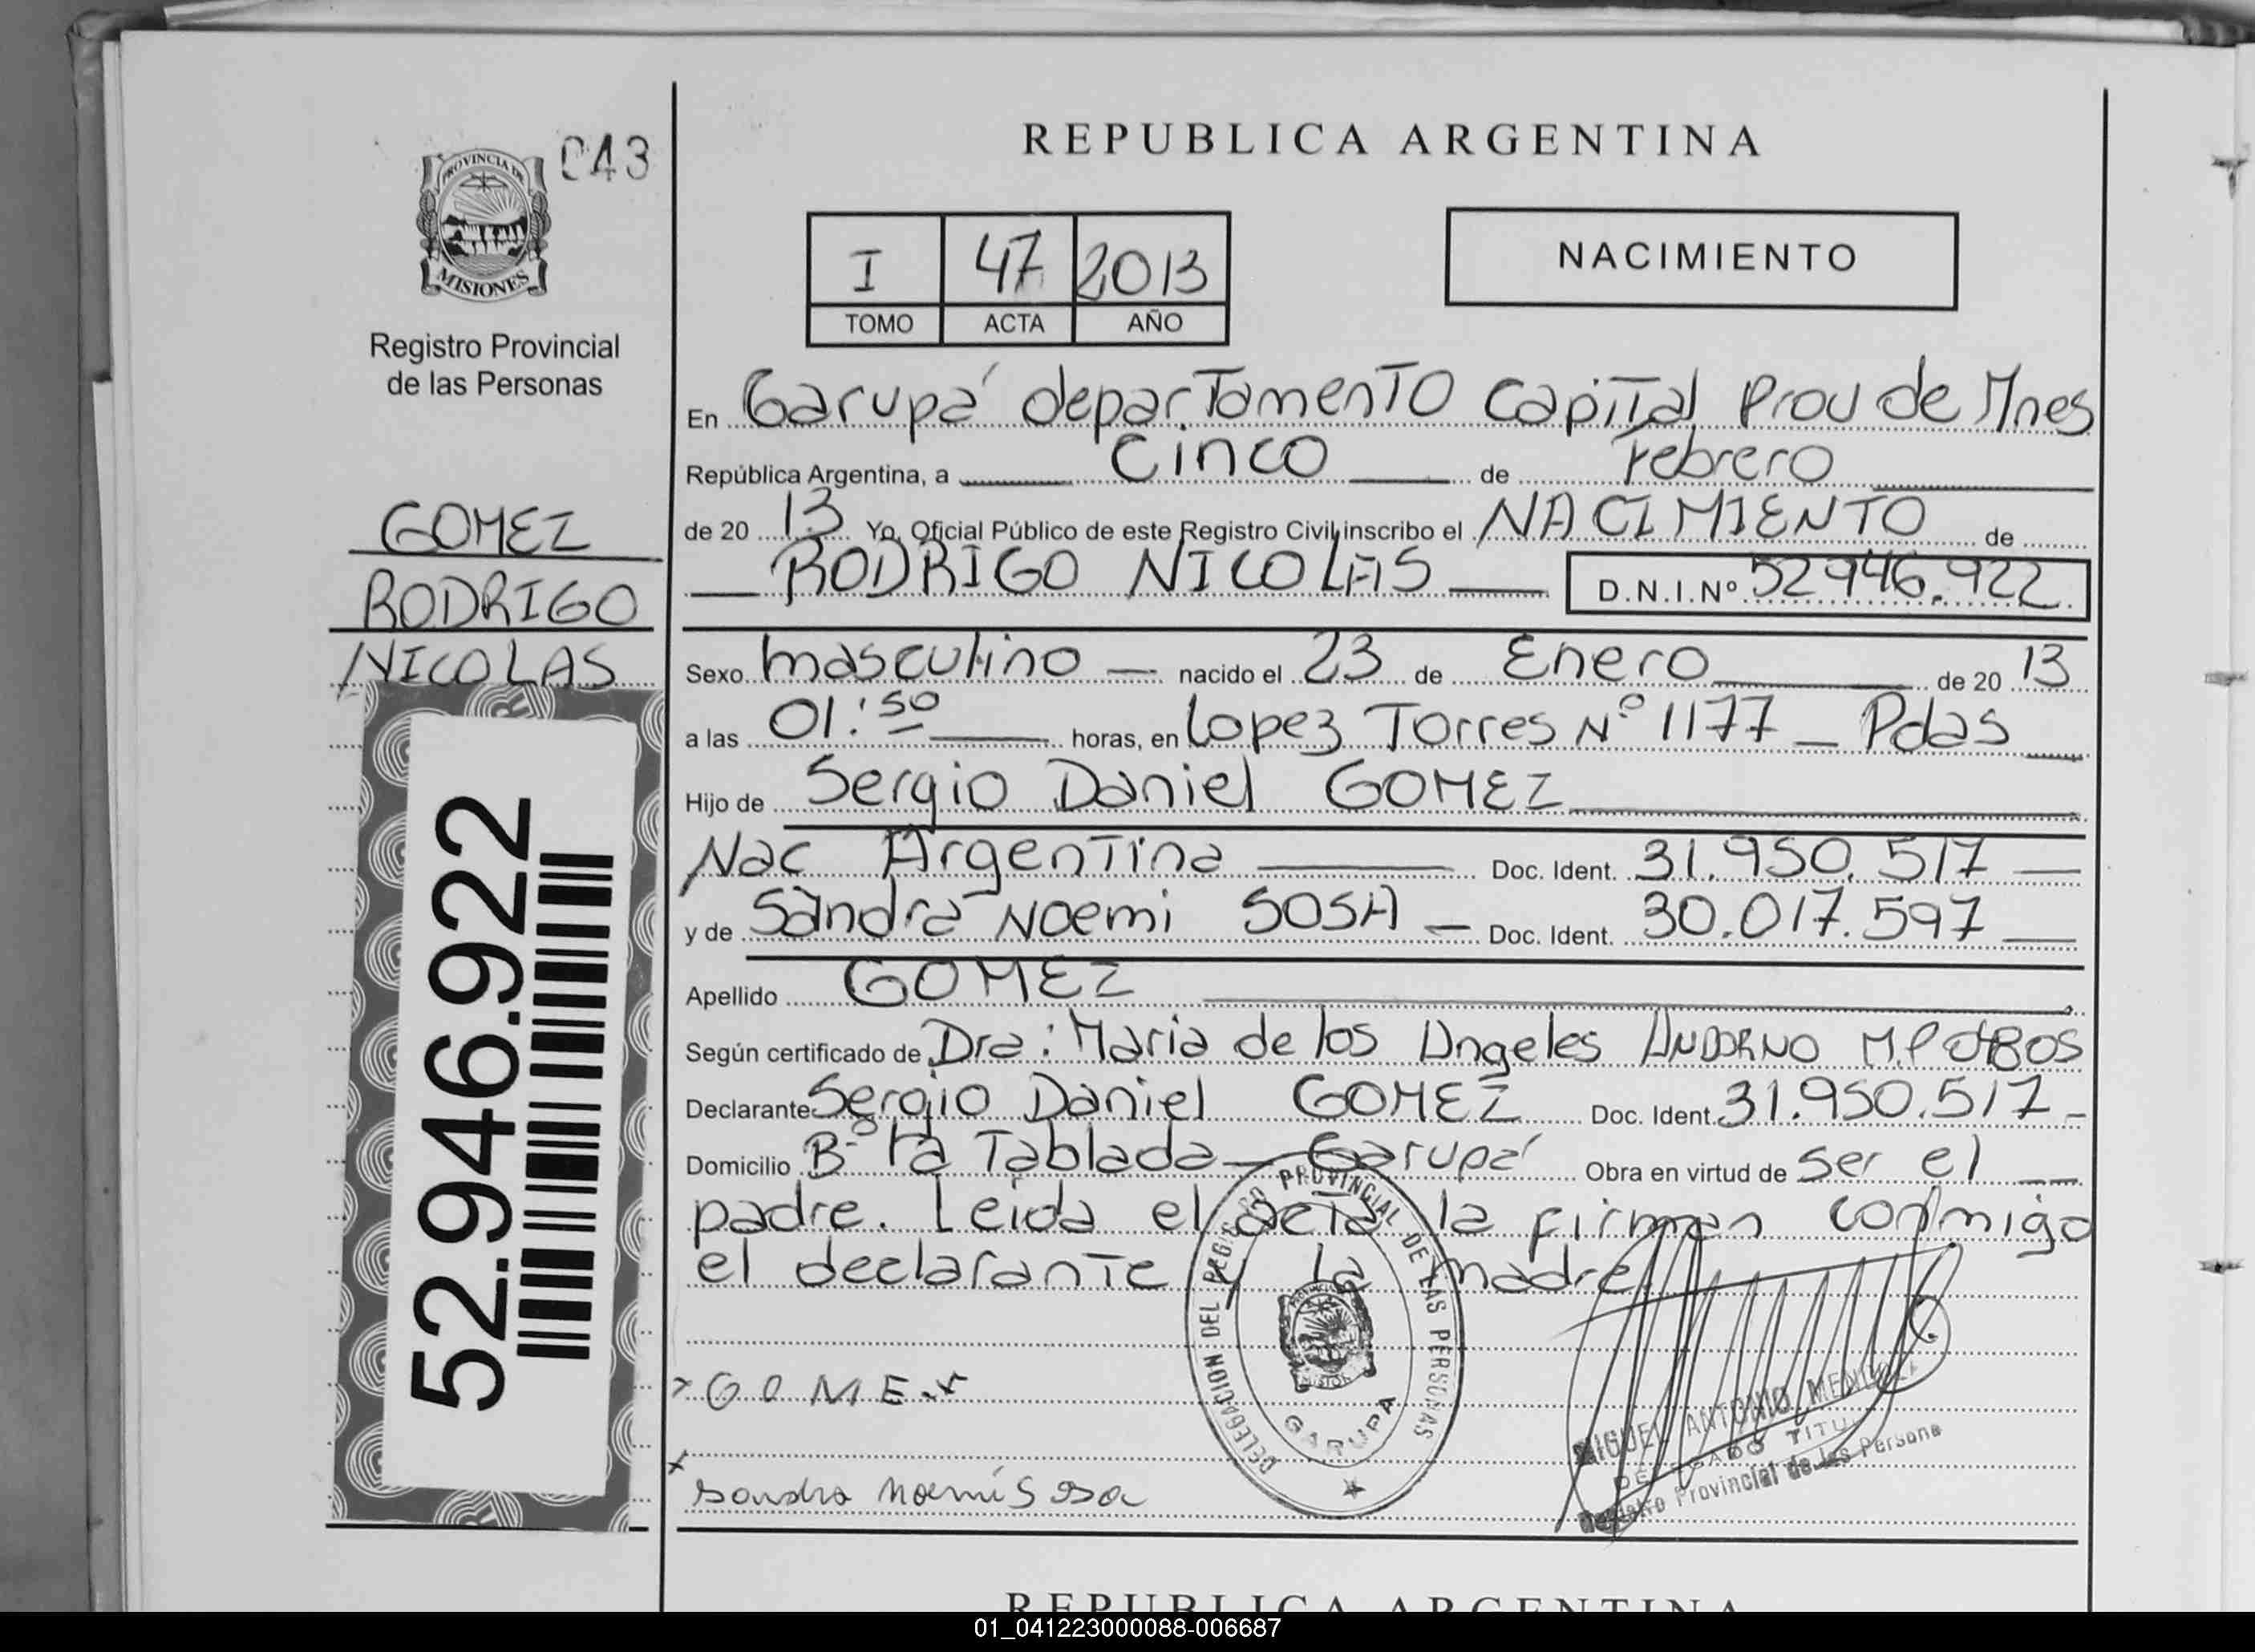 043
PROVINCIA DE
MISIONES
Registro Provincial
de las Personas
GOMEZ
RODRIGO
NICOLAS
52.946.922
REPUBLICA ARGENTINA
I 47 2013
TOMO ACTA AÑO
NACIMIENTO
En Garupá departamento Capital Prov de Mnes
República Argentina, a Cinco de Febrero
de 20 13 Yo, Oficial Público de este Registro Civil inscribo el NACIMIENTO de
RODRIGO NICOLAS D.N.I.Nº 52946.922
Sexo masculino nacido el 23 de Enero de 20 13
a las 01:50 horas, en Lopez Torres Nº 1177 _ Pdas
Hijo de Sergio Daniel GOMEZ
Nac Argentina Doc. Ident. 31.950.517
y de Sandra Noemi SOSA Doc. Ident. 30.017.597
Apellido GOMEZ
Según certificado de Dra: Maria de los Angeles ANDORNO M.P
Declarante Sergio Daniel GOMEZ Doc. Ident. 31.950.517
Domicilio Bº La Tablada - Garupá Obra en virtud de ser el
padre. Leida el acta la firman conmigo
el declarante y la madre
DELEGACION DEL REGISTRO PROVINCIAL DE LAS PERSONAS
GARUPA
GOMEZ
Sandra Noemi Sosa
MIGUEL ANTONIO
DELEGADO TITULAR
Registro Provincial de las Persona
REPUBLICA ARGENTINA
01_041223000088-006687